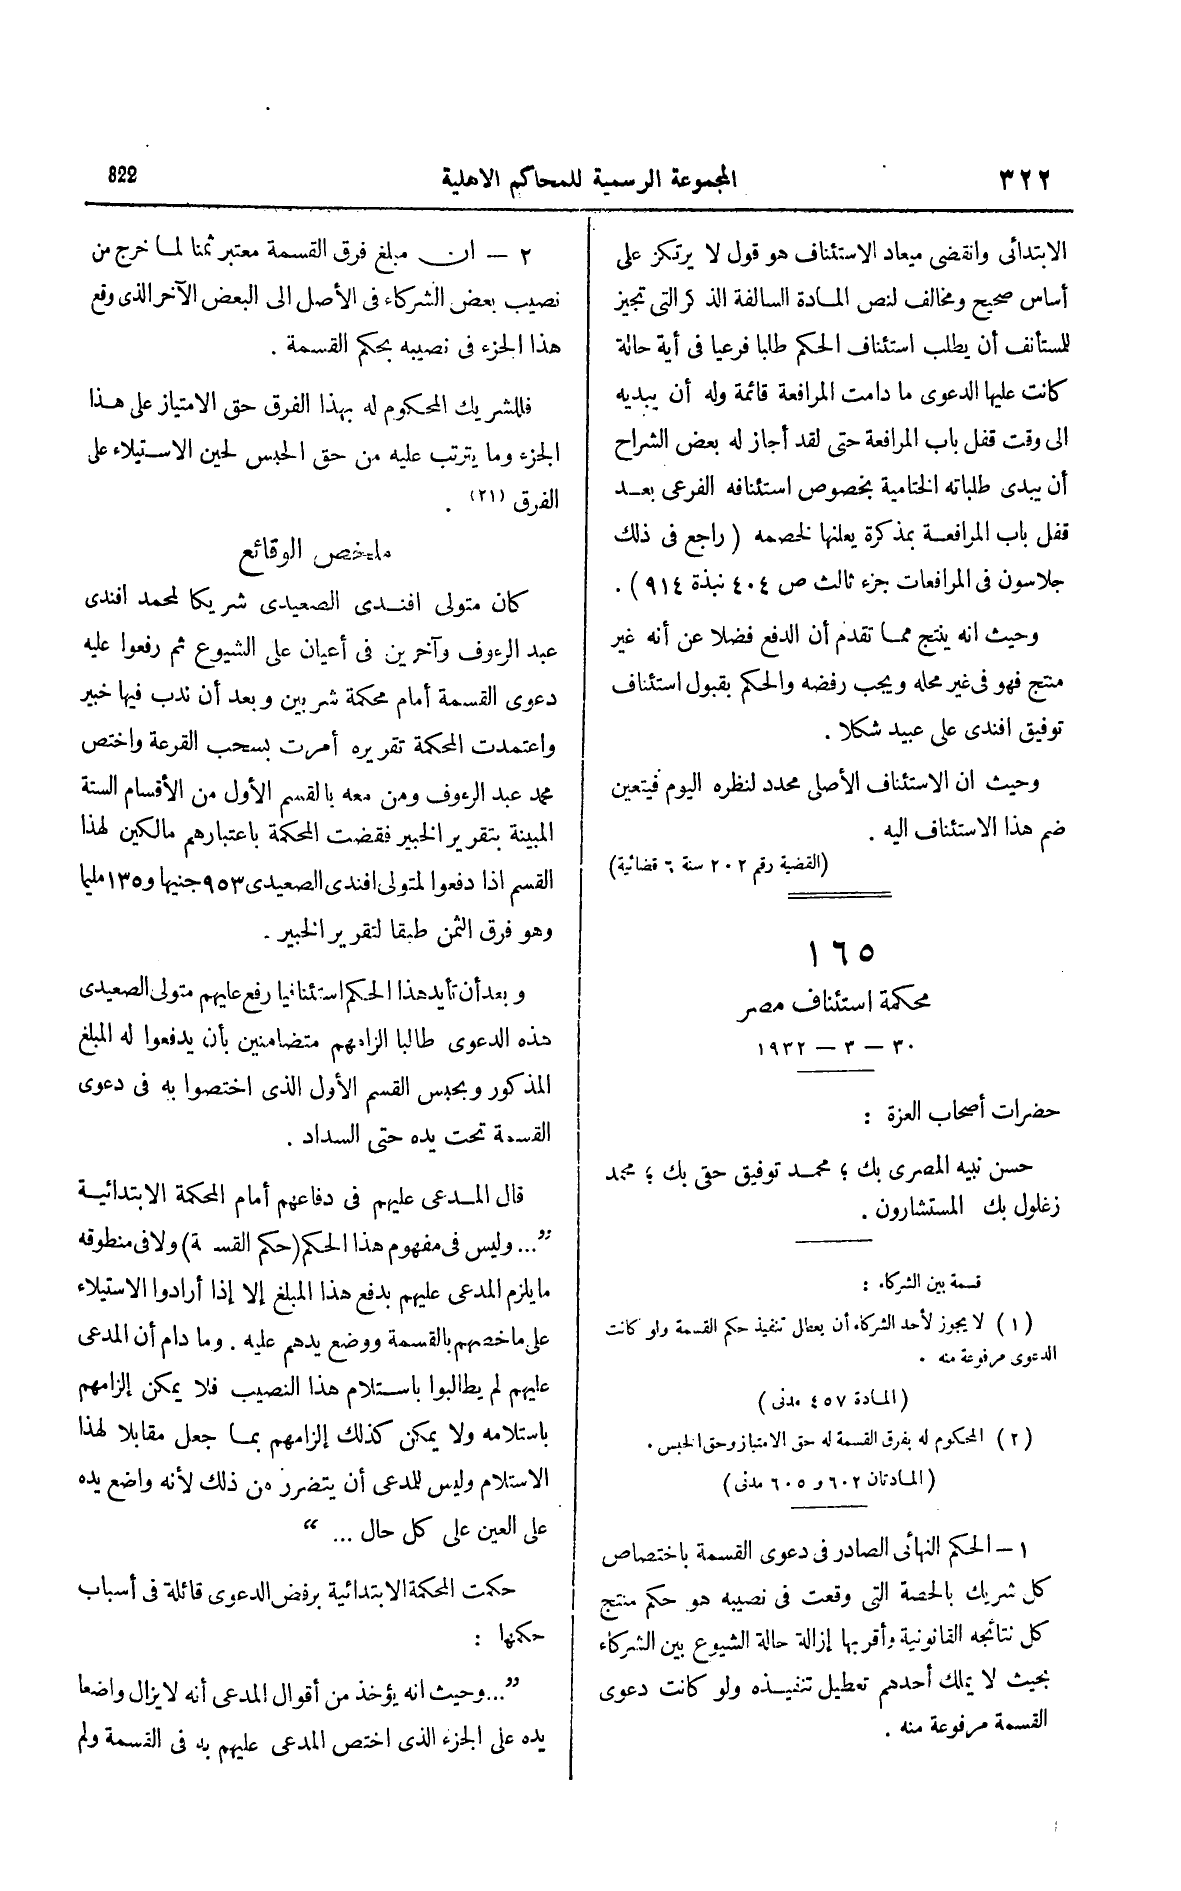 ٣٢٢
المجموعة الرسمية للمحاكم الاهلية
322
الابتدائى وانقضى ميعاد الاستئناف هو قول لا يرتكز على
أساس صحيح ومخالف لنص المادة السالفة الذكر التى تجيز
للمستأنف أن يطلب استئناف الحكم طلبا فرعيا فى أية حالة
كانت عليها الدعوى ما دامت المرافعة قائمة وله أن يبديه
الى وقت قفل باب المرافعة حتى لقد أجاز له بعض الشراح
أن يبدى طلباته الختامية بخصوص استئنافه الفرعى بعد
قفل باب المرافعة بمذكرة يعلنها لخصمه ( راجع فى ذلك
جلاسون فى المرافعات جزء ثالث ص ٤٠٤ نبذة ٩١٤ ) .
وحيث انه ينتج مما تقدم أن الدفع فضلا عن أنه غير
منتج فهو فى غير محله ويجب رفضه والحكم بقبول استئناف
توفيق افندى على عبيد شكلا .
وحيث ان الاستئناف الأصلى محدد لنظره اليوم فيتعين
ضم هذا الاستئناف اليه .
(القضية رقم ٢٠٢ سنة ٦ قضائية)
١٦٥
محكمة استئناف مصر
٣٠ — ٣ — ١٩٣٢
حضرات أصحاب العزة :
حسن نبيه المصرى بك ؛ محمد توفيق حقى بك ؛ محمد
زغلول بك المستشارون .
قسمة بين الشركاء :
(١) لا يجوز لأحد الشركاء أن يعطل تنفيذ حكم القسمة ولو كانت
الدعوى مرفوعة منه .
(المادة ٤٥٧ مدنى)
(٢) المحكوم له بفرق القسمة له حق الامتياز وحق الحبس .
(المادتان ٦٠٢ و ٦٠٥ مدنى)
١ — الحكم النهائى الصادر فى دعوى القسمة باختصاص
كل شريك بالحصة التى وقعت فى نصيبه هو حكم منتج
كل نتائجه القانونية وأقربها إزالة حالة الشيوع بين الشركاء
بحيث لا يملك أحدهم تعطيل تنفيذه ولو كانت دعوى
القسمة مرفوعة منه .
٢ — ان مبلغ فرق القسمة معتبر ثمنا لما خرج من
نصيب بعض الشركاء فى الأصل الى البعض الآخر الذى وقع
هذا الجزء فى نصيبه بحكم القسمة .
فللشريك المحكوم له بهذا الفرق حق الامتياز على هذا
الجزء وما يترتب عليه من حق الحبس لحين الاستيلاء على
الفرق (٢١) .
ملخص الوقائع
كان متولى افندى الصعيدى شريكا لمحمد افندى
عبد الرءوف وآخرين فى أعيان على الشيوع ثم رفعوا عليه
دعوى القسمة أمام محكمة شربين وبعد أن ندب فيها خبير
واعتمدت المحكمة تقريره أمرت بسحب القرعة واختص
محمد عبد الرءوف ومن معه بالقسم الأول من الأقسام الستة
المبينة بتقرير الخبير فقضت المحكمة باعتبارهم مالكين لهذا
القسم اذا دفعوا لمتولى افندى الصعيدى ٩٥٣ جنيها و ١٣٥ مليما
وهو فرق الثمن طبقا لتقرير الخبير .
وبعد أن تأيد هذا الحكم استئنافيا رفع عليهم متولى الصعيدى
هذه الدعوى طالبا الزامهم متضامنين بأن يدفعوا له المبلغ
المذكور وبحبس القسم الأول الذى اختصوا به فى دعوى
القسمة تحت يده حتى السداد .
قال المدعى عليهم فى دفاعهم أمام المحكمة الابتدائية
”... وليس فى مفهوم هذا الحكم (حكم القسمة) ولا فى منطوقه
ما يلزم المدعى عليهم بدفع هذا المبلغ إلا إذا أرادوا الاستيلاء
على ما خصهم بالقسمة ووضع يدهم عليه . وما دام أن المدعى
عليهم لم يطالبوا باستلام هذا النصيب فلا يمكن إلزامهم
باستلامه ولا يمكن كذلك إلزامهم بما جعل مقابلا لهذا
الاستلام وليس للمدعى أن يتضرر من ذلك لأنه واضع يده
على العين على كل حال ... “
حكمت المحكمة الابتدائية برفض الدعوى قائلة فى أسباب
حكمها :
”... وحيث انه يؤخذ من أقوال المدعى أنه لا يزال واضعا
يده على الجزء الذى اختص المدعى عليهم به فى القسمة ولم